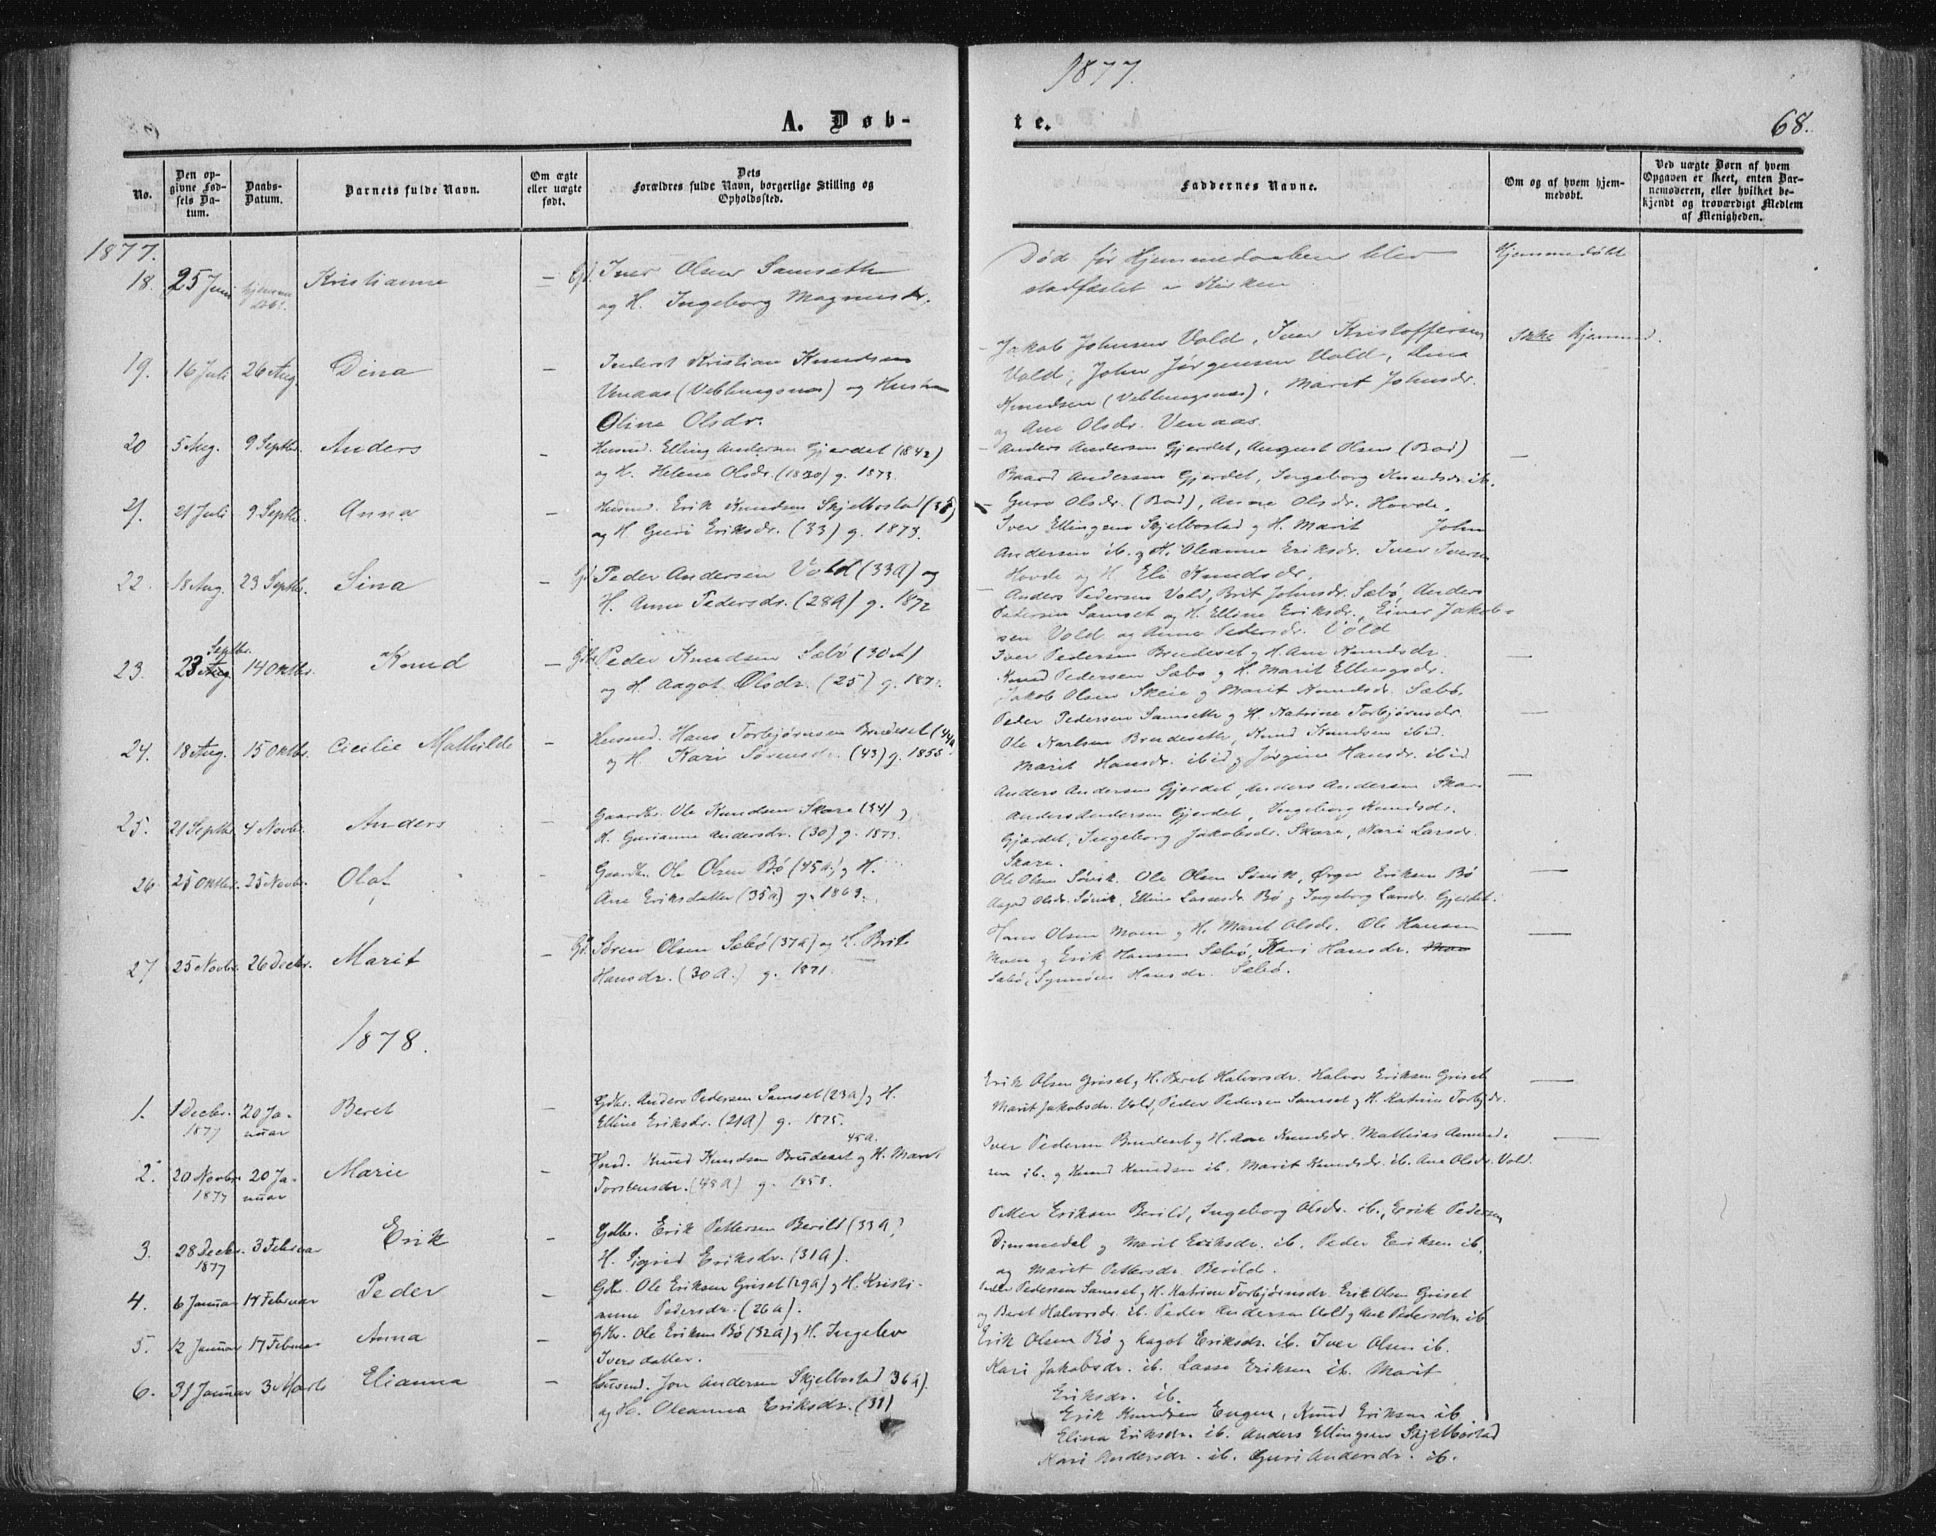 1877.
A. Døb-
te.
68.
No.
Den op-
givne Fød-
sels Da-
tum.
Daabs-
Datum.
Barnets fulde Navn.
Om ægte
eller uægte
født.
Dets
Forældres fulde Navn, borgerlige Stilling og
Opholdssted.
Faddernes Navne.
Om og af hvem hjem-
medøbt.
Ved uægte Børn af hvem
Opgaven er skeet, enten Bar-
nemoderen, eller hvilket be-
kjendt og troværdigt Medlem
af Menigheden.
1877.
18. 25 Juni Kristianna — Gf. Iver Olsen Samseth
og H. Ingeborg Magnusdr.
Død før Hjemmedaaben blev
stadfæstet i Kirken
Hjemmedøbt
19. 16 Juli 26 Aug. Dina — Inderst Kristian Knudsen
Venaas (Veblungsnæs) og Hustru
Oline Olsdr.
Jakob Johnsen Vold, Iver Kristoffersen
Vold, John Jørgensen Vold, Dina
Knudsen (Veblungsnæs), Marit Johnsdr.
og Ane Olsdr. Venaas
Ikke hjemmed.
20 5 Aug. 9 Septbr. Anders — Husmd. Elling Andersen Gjerdet (1842)
og H. Helene Olsdr. (1830) g. 1873.
Anders Andersen Gjerdet, August Olsen (Bød)
Baard Andersen Gjerdet, Ingeborg Knudsdr. ib.
Guro Olsdr. (Bød), Anne Olsdr. Hovde.
—
21. 21 Juli 9 Septbr. Anna — Husmd. Erik Knudsen Skjelbostad (35)
og H. Guri Eriksdr. (33) g. 1873.
Iver Ellingsen Skjelbostad og H. Marit John
Andersen ib. og H. Oleanna Eriksdr. Iver Iversen
Hovde og H. Eli Knudsdr.
22. 18 Aug. 23 Septbr. Sina — Gf. Peder Andersen Vold (33A) og
H. Anne Pedersdr. (28A) g. 1872
Anders Pedersen Vold, Brit Johnsdr. Sæbø, Anders
Pedersen Samset og H. Elline Eriksdr. Einer Jakob-
sen Vold og Anne Pedersdr. Vold
23. 23 Aug Septbr. 14 Oktbr. Knud — Gdbr. Peder Knudsen Sæbø (30A)
og H. Aagot Olsdr. (25) g. 1871.
Iver Pedersen Brudeset og H. Ane Knudsdr.
Knud Pedersen Sæbø og H. Marit Ellingsdr.
Jakob Olsen Skeie og Marit Knudsdr. Sæbø.
—
24. 18 Aug. 15 Oktbr. Cicilie Mathilde — Husmd. Hans Torbjørnsen Brudeset (44A
og H. Kari Sørensdr. (43) g. 1855
Peder Pedersen Samseth og H. Katrine Torbjørnsdr.
Ole Karlsen Brudeseth, Knud Knudsen ibid.
Marit Hansdr. ibid og Jørgine Hansdr. ibid
—
25. 21 Septbr. 4 Novbr. Anders — Gaardbr. Ole Knudsen Skare (34) og
H. Gurianne Andersdr. (30) g. 1873.
Anders Andersen Gjerdet, Anders Andersen Skare
Anders Andersen Gjerdet, Ingeborg Knudsdr.
Gjærdet, Ingeborg Jakobsdr. Skare, Kari Larsdr.
Skare.
—
26 25 Oktbr. 25 Novbr. Olaf — Gaardbr. Ole Olsen Bø (45A) og H.
Ane Eriksdatter (35A) g. 1863.
Ole Olsen Søvik. Ole Olsen Søvik, Ørger Eriksen Bø
Aagot Olsdr. Søvik, Elline Larsesdr. Bø og Ingeborg Larsdr. Gjerdet.
—
27 25 Novbr. 26 Decbr. Marit — Gf. Søren Olsen Sæbø (37A) og H. Brit
Hansdr. (30A.) g. 1871.
Hans Olsen Moen og H. Marit Olsdr. Ole Hansen
Moen og Erik Hansen Sæbø, Kari Hansdr. Moe
Sæbø, Synnøve Hansdr. Sæbø.
—
1878.
1. 1 Decbr. 1877 20 Ja-
nuar Beret — Gdbr. Anders Pedersen Samset (23A) og H.
Elline Eriksdr. (21A) g. 1875.
Erik Olsen Griset og H. Beret Halvorsdr. Halvor Eriksen Griset
Marit Jakobsdr. Vold, Peder Pedersen Samset og H. Katrine Torbjdr.
—
2. 20 Novbr. 1877 20 Ja-
nuar Marie — Hmd. Knud Knudsen Brudeset 45A. og H. Marit
Torstensdr. (48A) g. 1858.
Iver Pedersen Brudeset og H. Ane Knudsdr. Mathias Amund-
sen ib. og Knud Knudsen ib. Marit Knudsdr. ib. Ane Olsdr. Vold.
—
3. 28 Decbr. 1877 3 Februar Erik — Gdbr. Erik Pettersen Berild (33A)
H. Sigrid Eriksdr. (31A).
Petter Eriksen Berild, Ingeborg Olsdr. ib., Erik Pedersen
Dimmedal og Marit Eriksdr. ib. Peder Eriksen ib.
og Marit Pettersdr. Berild.
4. 6 Januar 17 Februar Peder — Gdbr. Ole Eriksen Griset (29A) og H. Kristi-
anne Pedersdr. (26A).
Peder Pedersen Samset og H. Katrine Torbjørnsdr. Erik Olsen Griset
og Beret Halvorsdr. ib. Peder Andersen Vold og Ane Pedersdr. ib.
5. 12 Januar 17 Februar Anna — Gdbr. Ole Eriksen Bø (32A) og H. Ingelev
Iversdatter.
Erik Olsen Bø og Aagot Eriksdr. ib. Iver Olsen ib.
Kari Jakobsdr. ib. Lasse Eriksen ib. Marit
Eriksdr. ib.
6. 31 Januar 3 Marts Elianna — Husmd. Jon Andersen Skjelbostad 36A).
og H. Oleanna Eriksdr. (31)
Erik Knudsen Engen, Knud Eriksen ib
Elina Eriksdr. ib. Anders Ellingsen Skjelbostad
Kari Andersdr. ib. Guri Andersdr. ib.